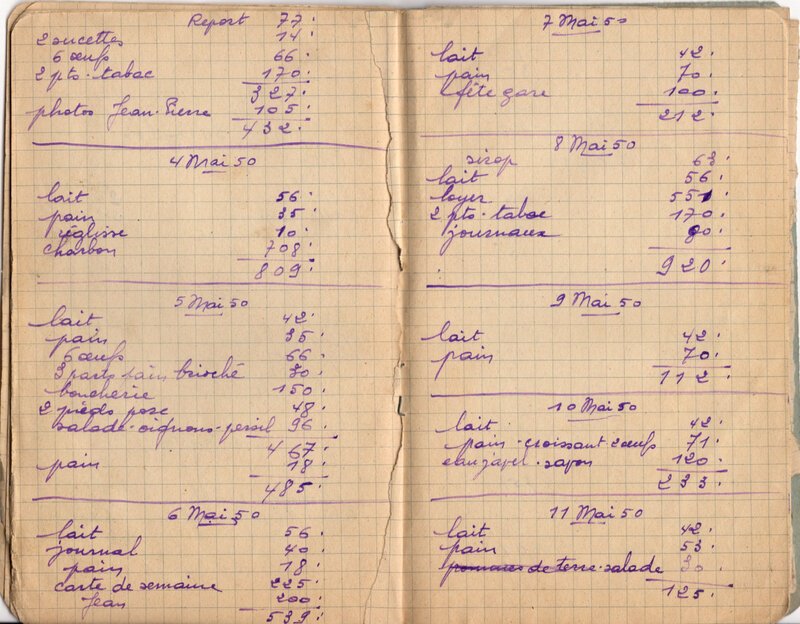 Report 77:
2 sucettes 14:
6 œufs 66:
2 pts. tabac 170:
327:
photos Jean-Pierre 105:
432:
4 Mai 50
lait 56:
pain 35:
réglisse 10:
charbon 708:
809:
5 Mai 50
lait 42:
pain 35:
6 œufs 66:
3 parts pain brioché 30:
boucherie 150:
2 pieds porc 48:
salade-oignons-persil 96:
467:
pain 18:
485:
6 Mai 50
lait 56:
journal 40:
pain 18:
carte de semaine 225:
Jean 200:
539:
7 Mai 50
lait 42:
pain 70:
fête gare 100:
212:
8 Mai 50
sirop 63:
lait 56:
loyer 551:
2 pts. tabac 170:
journaux 80:
920:
9 Mai 50
lait 42:
pain 70:
112:
10 Mai 50
lait 42:
pain-croissant 2 œufs 71:
eau javel-savon 120:
233:
11 Mai 50
lait 42:
pain 53:
pommes de terre-salade 30:
125: